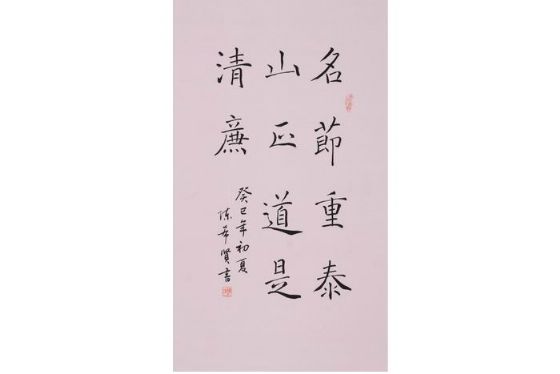 名節重泰
山正道是
清廉
癸巳年初夏
陈希賢書